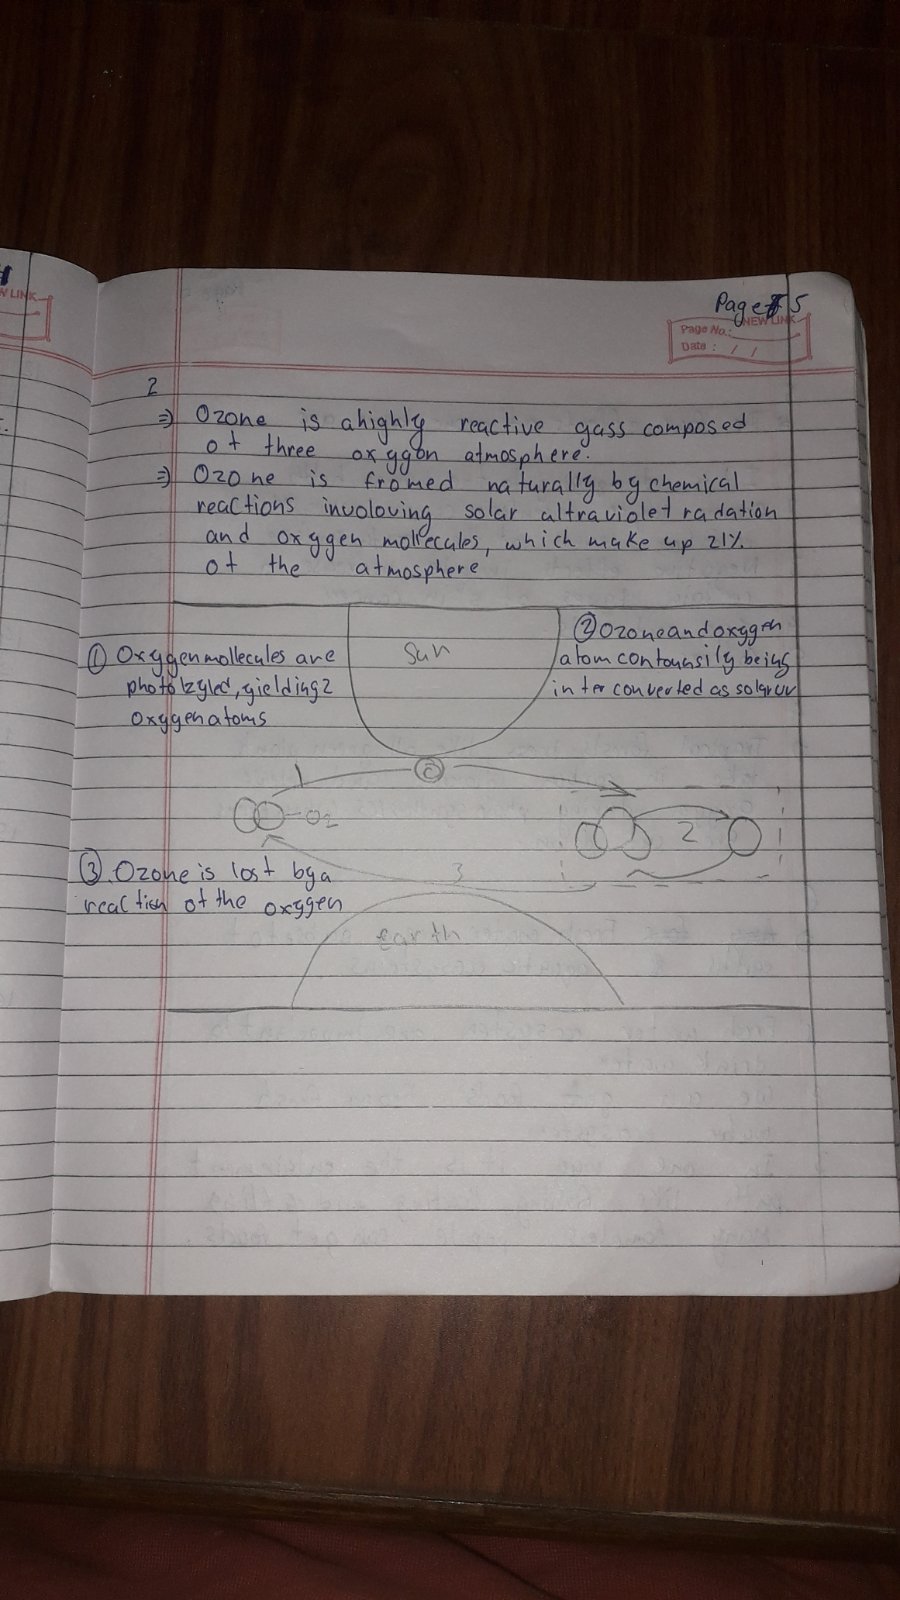 Page# 5
NEW LINK
Page No.:
Date : / /
W LINK
2
⇒ Ozone is a highly reactive gass composed
of three oxyggn atmosphere.
⇒ Ozo ne is fromed naturally by chemical
reactions involoving solar altraviolet radation
and oxyggen mollecales, which make up 21%
of the atmosphere
Sun
① Oxyggen mollecules are
photolzyled, yielding 2
oxyggen atoms
② Ozone and oxyggen
atom contounsily being
inter converted as solar uv
1
O
O2
2
3
③. Ozone is lost by a
reaction of the oxyggen
Earth